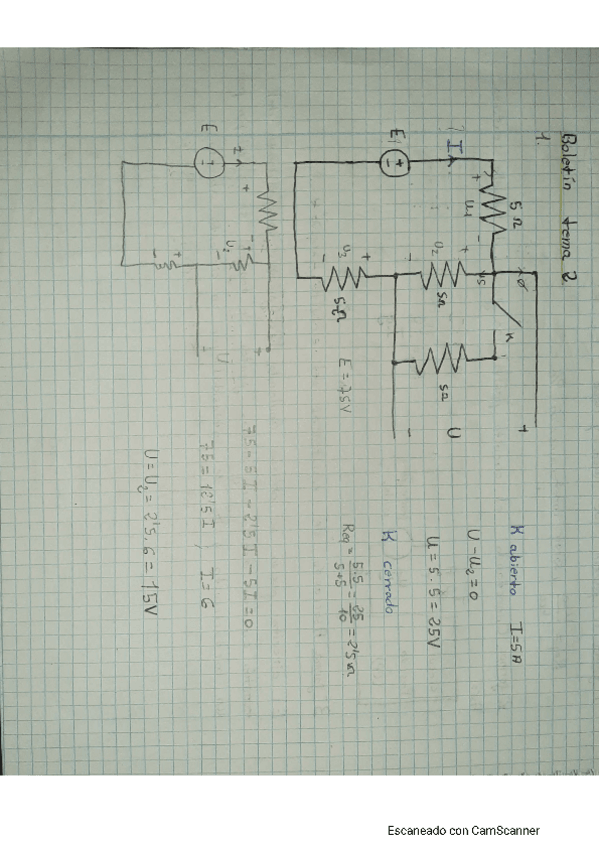 Boletín tema 2
1.
5 Ω
+ U1 -
I
E
+ U2 -
5Ω
U5
K
5Ω
+ U -
+ U3 -
5Ω
E = 75V
K abierto I=5A
U-U2=0
U = 5·5 = 25V
K cerrado
Req = 5·5/5+5 = 25/10 = 2'5 Ω
E
+
U2
+ U -
75-5I-2'5I-5I=0
75=12'5I ; I=6
U=U2=2'5·6=15V
Escaneado con CamScanner